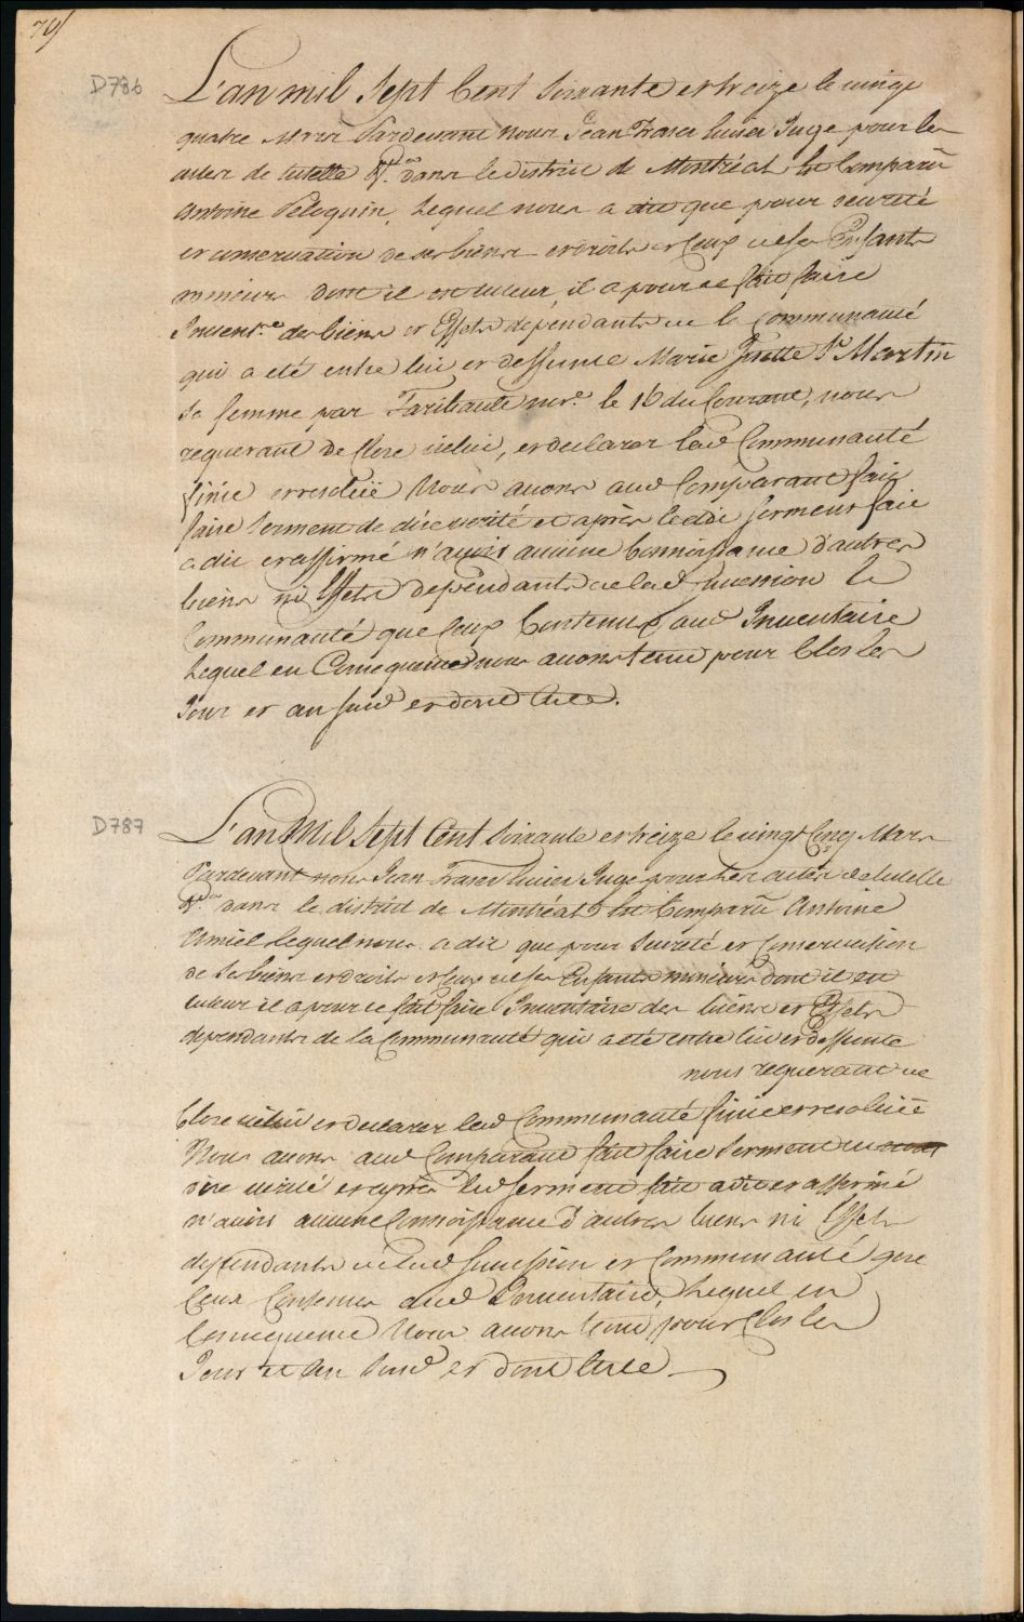 79/
D786
L'an mil Sept Cent Soixante et treize le vingt
quatre Mars Pardevant nous Jean Fraser Ecuier Juge pour les
actes de tutelle &c.ª dans le district de Montréal Est Comparu
Antoine Peloquin, Lequel nous a dit que pour seureté
et conservation de ses biens et droits et Ceux de ses Enfants
mineurs dont il est tuteur, il a pour ce fait faire
Invent.re des biens et Effets dependants de la Communauté
qui a eté entre lui et deffunte Marie Josette St Martin
Sa femme par Faribault no.re le 16 du Courant, nous
requerant de Clore icelui, et declarer lad Communauté
finie et resoluë Nous avons aud Comparant fait
faire Serment de dire verité et après led Serment fait
a dit et affirmé n'avoir aucune Connoissance d'autres
biens ni Effets dependants de lad Succession &
Communauté que Ceux Contenus aud Inventaire
Lequel en Consequence nous avons tenu pour Clos les
Jour et an susd et donné Acte.
D787
L'an Mil Sept Cent Soixante et treize le vingt Cinq Mars
Pardevant nous Jean Fraser Ecuier Juge pour Les actes de tutelle
&c.ª dans le district de Montréal Est Comparu Antoine
Amiel lequel nous a dit que pour Seureté et Conservation
de Ses biens et droits et Ceux de ses Enfants mineurs dont il est
tuteur il a pour ce fait faire Inventaire des biens et Effets
dependants de la Communauté qui a eté entre lui et deffunte
nous requerant de
Clore icelui et declarer lad Communauté finie et resoluë
Nous avons aud Comparant fait faire Serment de
dire verité et après led Serment fait a dit et affirmé
n'avoir aucune Connoissance d'autres biens ni Effets
dependants de lad Succession et Communauté que
Ceux Contenus aud Inventaire, Lequel en
Consequence Nous avons tenu pour Clos les
Jour et An Susd et donné Acte